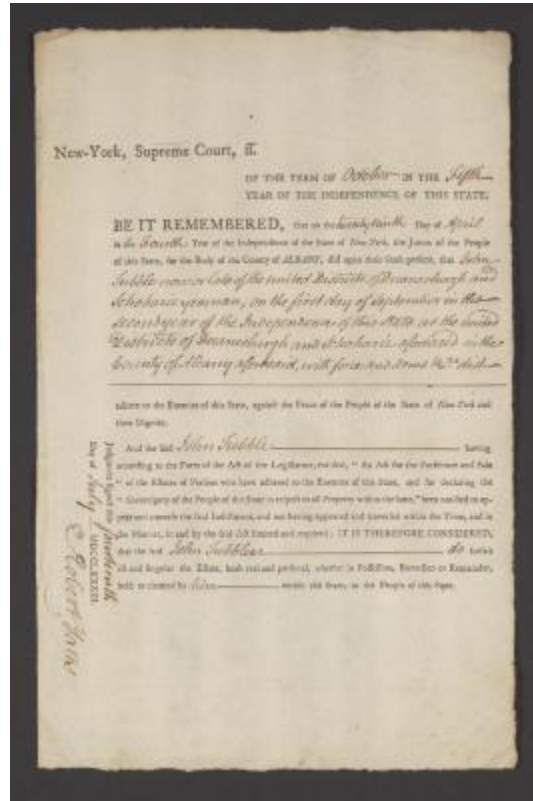 New-York, Supreme Court, ss.
OF THE TERM OF October IN THE Fifth
YEAR OF THE INDEPENDENCE OF THIS STATE,
BE IT REMEMBERED, that on the twenty ninth Day of April
in the Fourth Year of the Independence of the State of New-York, the Jurors of the People
of this State, for the Body of the County of ALBANY, did upon their Oath present, that John
now or late of the united Districts of Duanesburgh and
Schoharie yeoman, on the first day of September in the
second year of the Independence of this State at the united
Districts of Duanesburgh and Schoharie aforesaid in the
County of Albany aforesaid, with force and Arms &ca. did
adhere to the Enemies of this State, against the Peace of the People of the State of New-York and
their Dignity.
And the said John having
according to the Form of the Act of the Legislature, entitled, " An Act for the Forfeiture and Sale
" of the Estates of Persons who have adhered to the Enemies of this State, and for declaring the
" Sovereignty of the People of this State in respect to all Property within the same," been notified to ap-
pear and traverse the said Indictment, and not having appeared and traversed within the Time, and in
the Manner, in and by the said Act limited and required; IT IS THEREFORE CONSIDERED,
that the said John do forfeit
all and singular the Estate, both real and personal, whether in Possession, Reversion or Remainder,
held or claimed by him within this State, to the People of this State.
Judgment signed this fourteenth
Day of July MDCCLXXXIII
Robert Yates